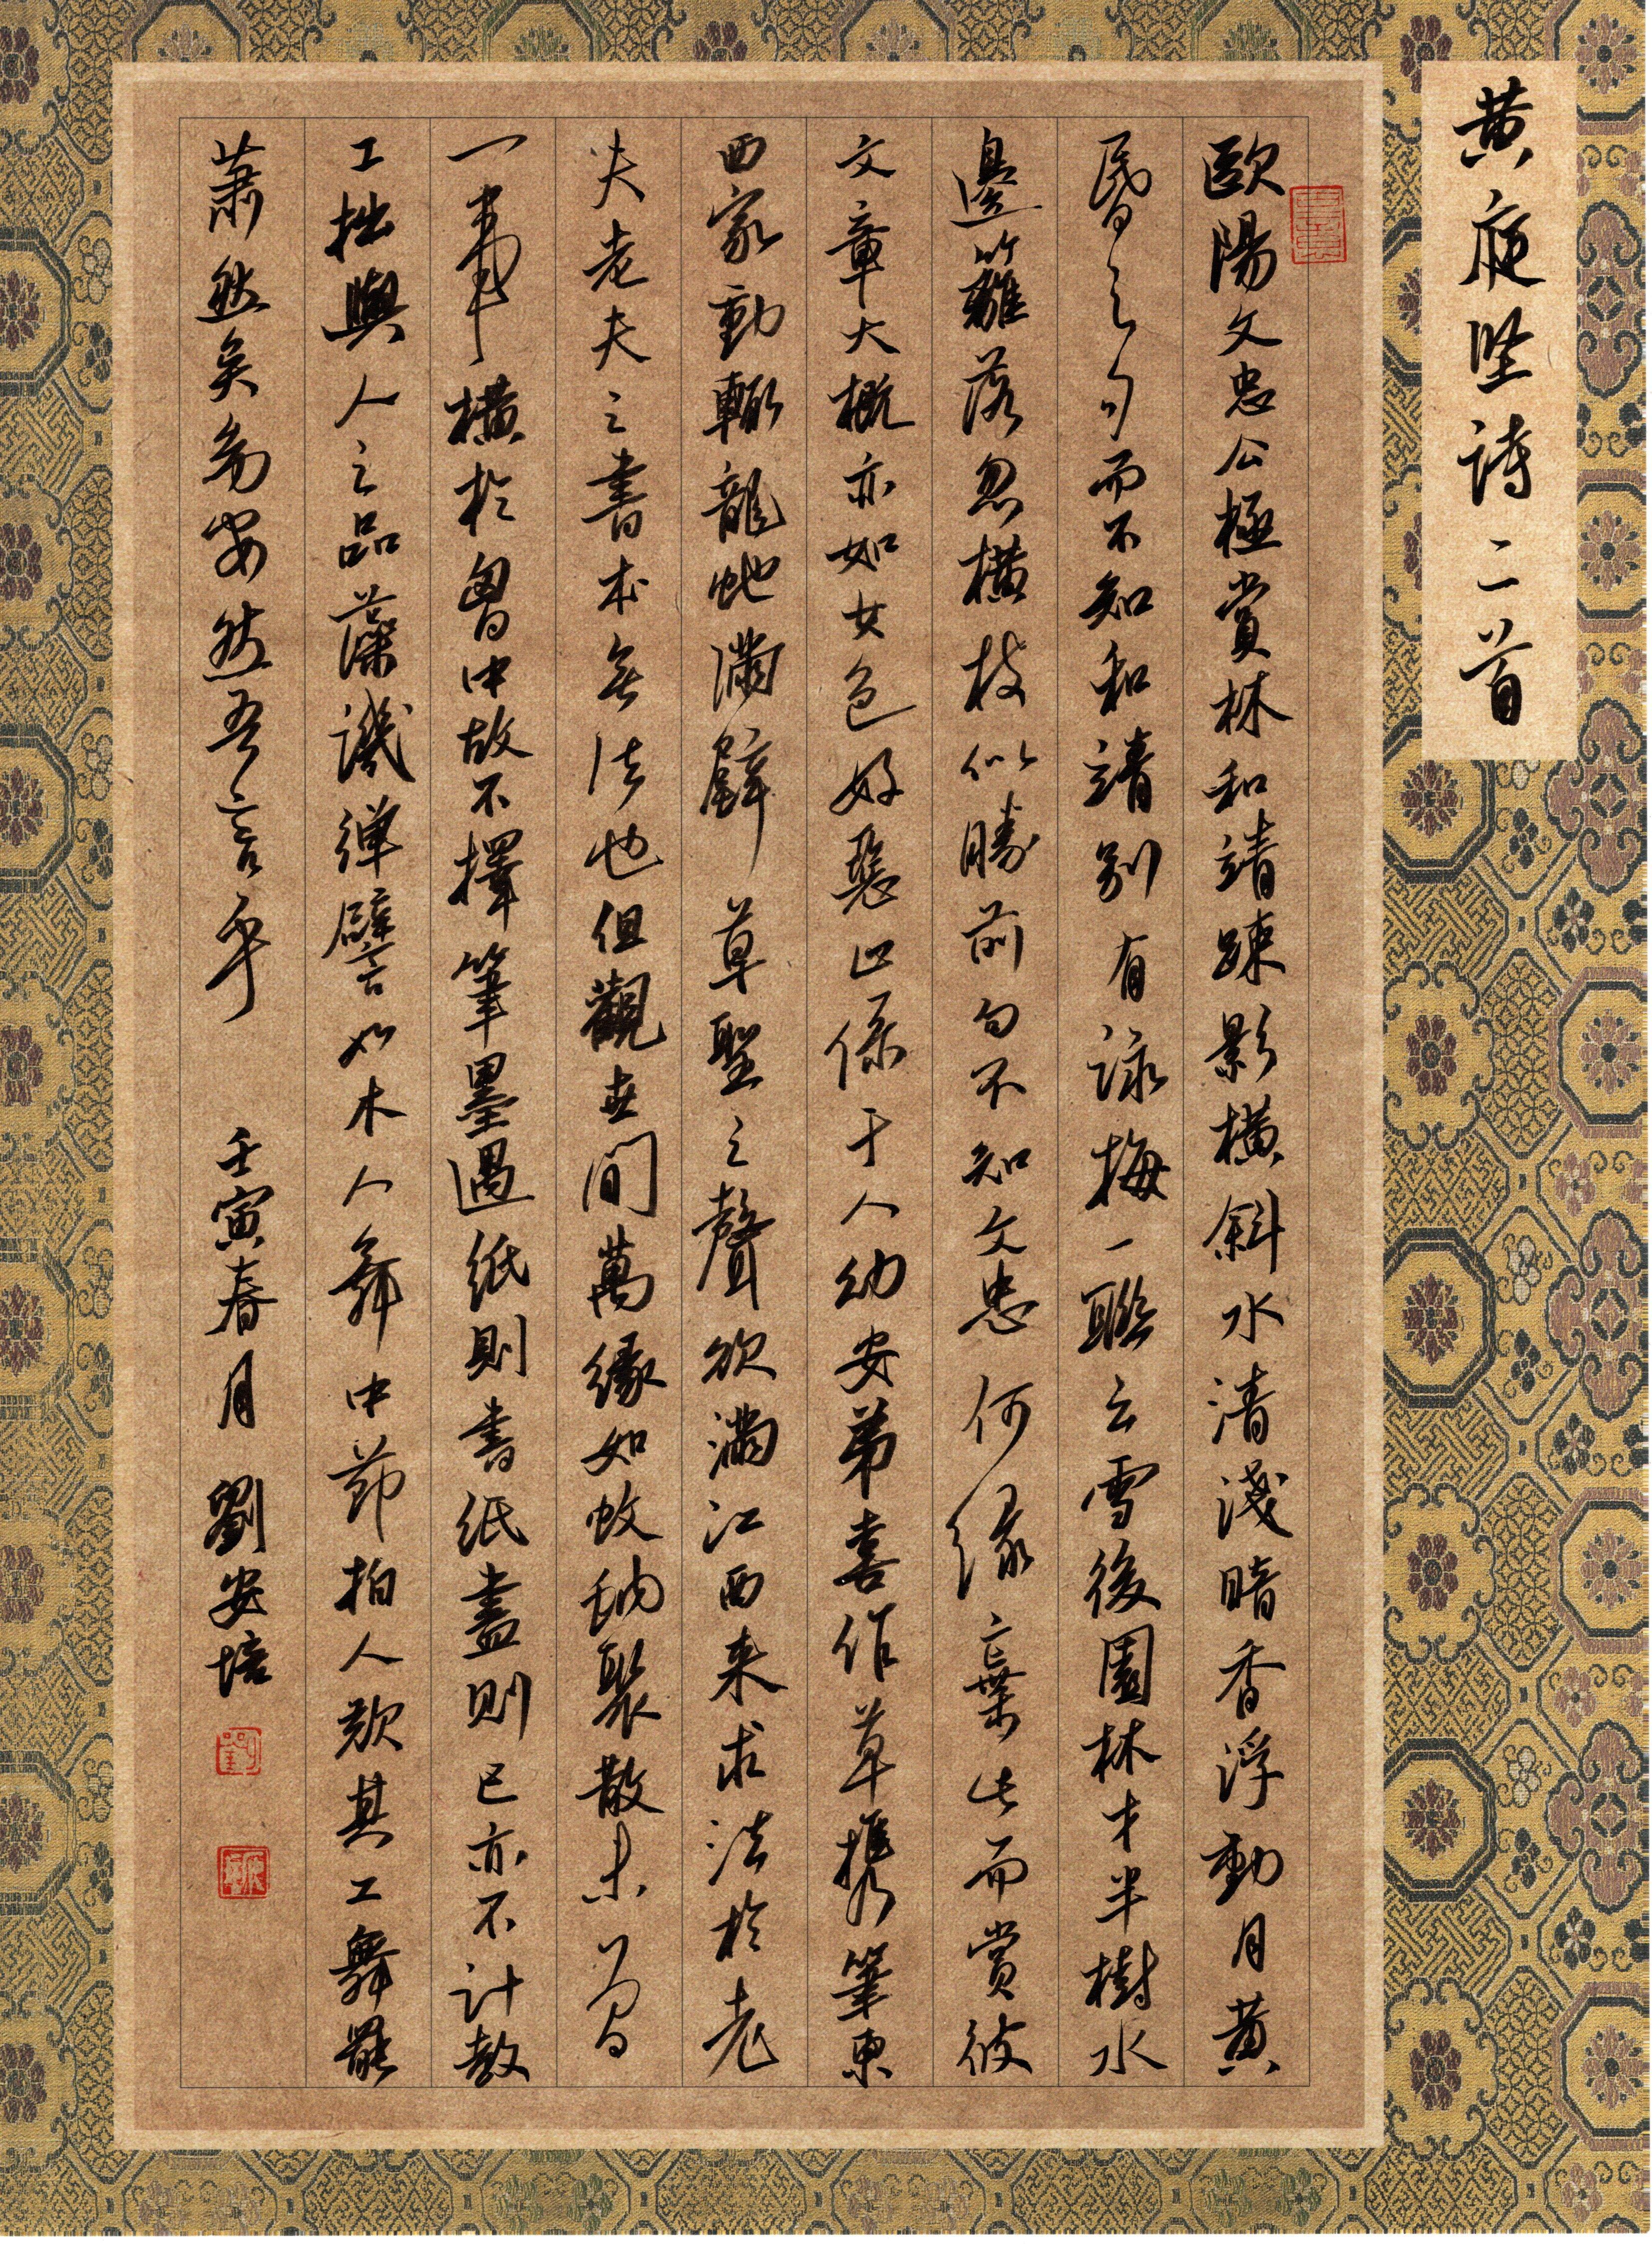 黄庭坚诗二首
歐陽文忠公極賞林和靖疎影橫斜水清淺暗香浮動月黄
昏之句而不知和靖别有詠梅一聯云雪後園林才半樹水
邊籬落忽橫枝似勝前句不知文忠何緣棄此而賞彼
文章大概亦如女色好惡止係于人幼安弟喜作草攜筆東
西家動輒龍蛇滿壁草聖之聲欲滿江西来求法於老
夫老夫之書本無法也但觀世間萬緣如蚊蚋聚散未曾
一事橫於胷中故不擇筆墨遇紙則書紙盡則已亦不計較
工拙與人之品藻譏彈譬如木人舞中節拍人歎其工舞罷
蕭然矣幼安然吾言乎 壬寅春月 劉安培